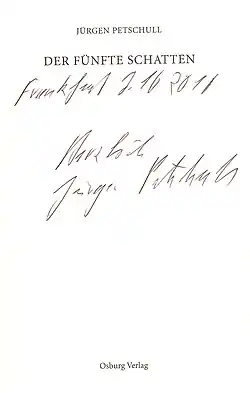 JÜRGEN PETSCHULL
DER FÜNFTE SCHATTEN
Frankfurt 2011
Herzlich
Jürgen Petschull
Osburg Verlag